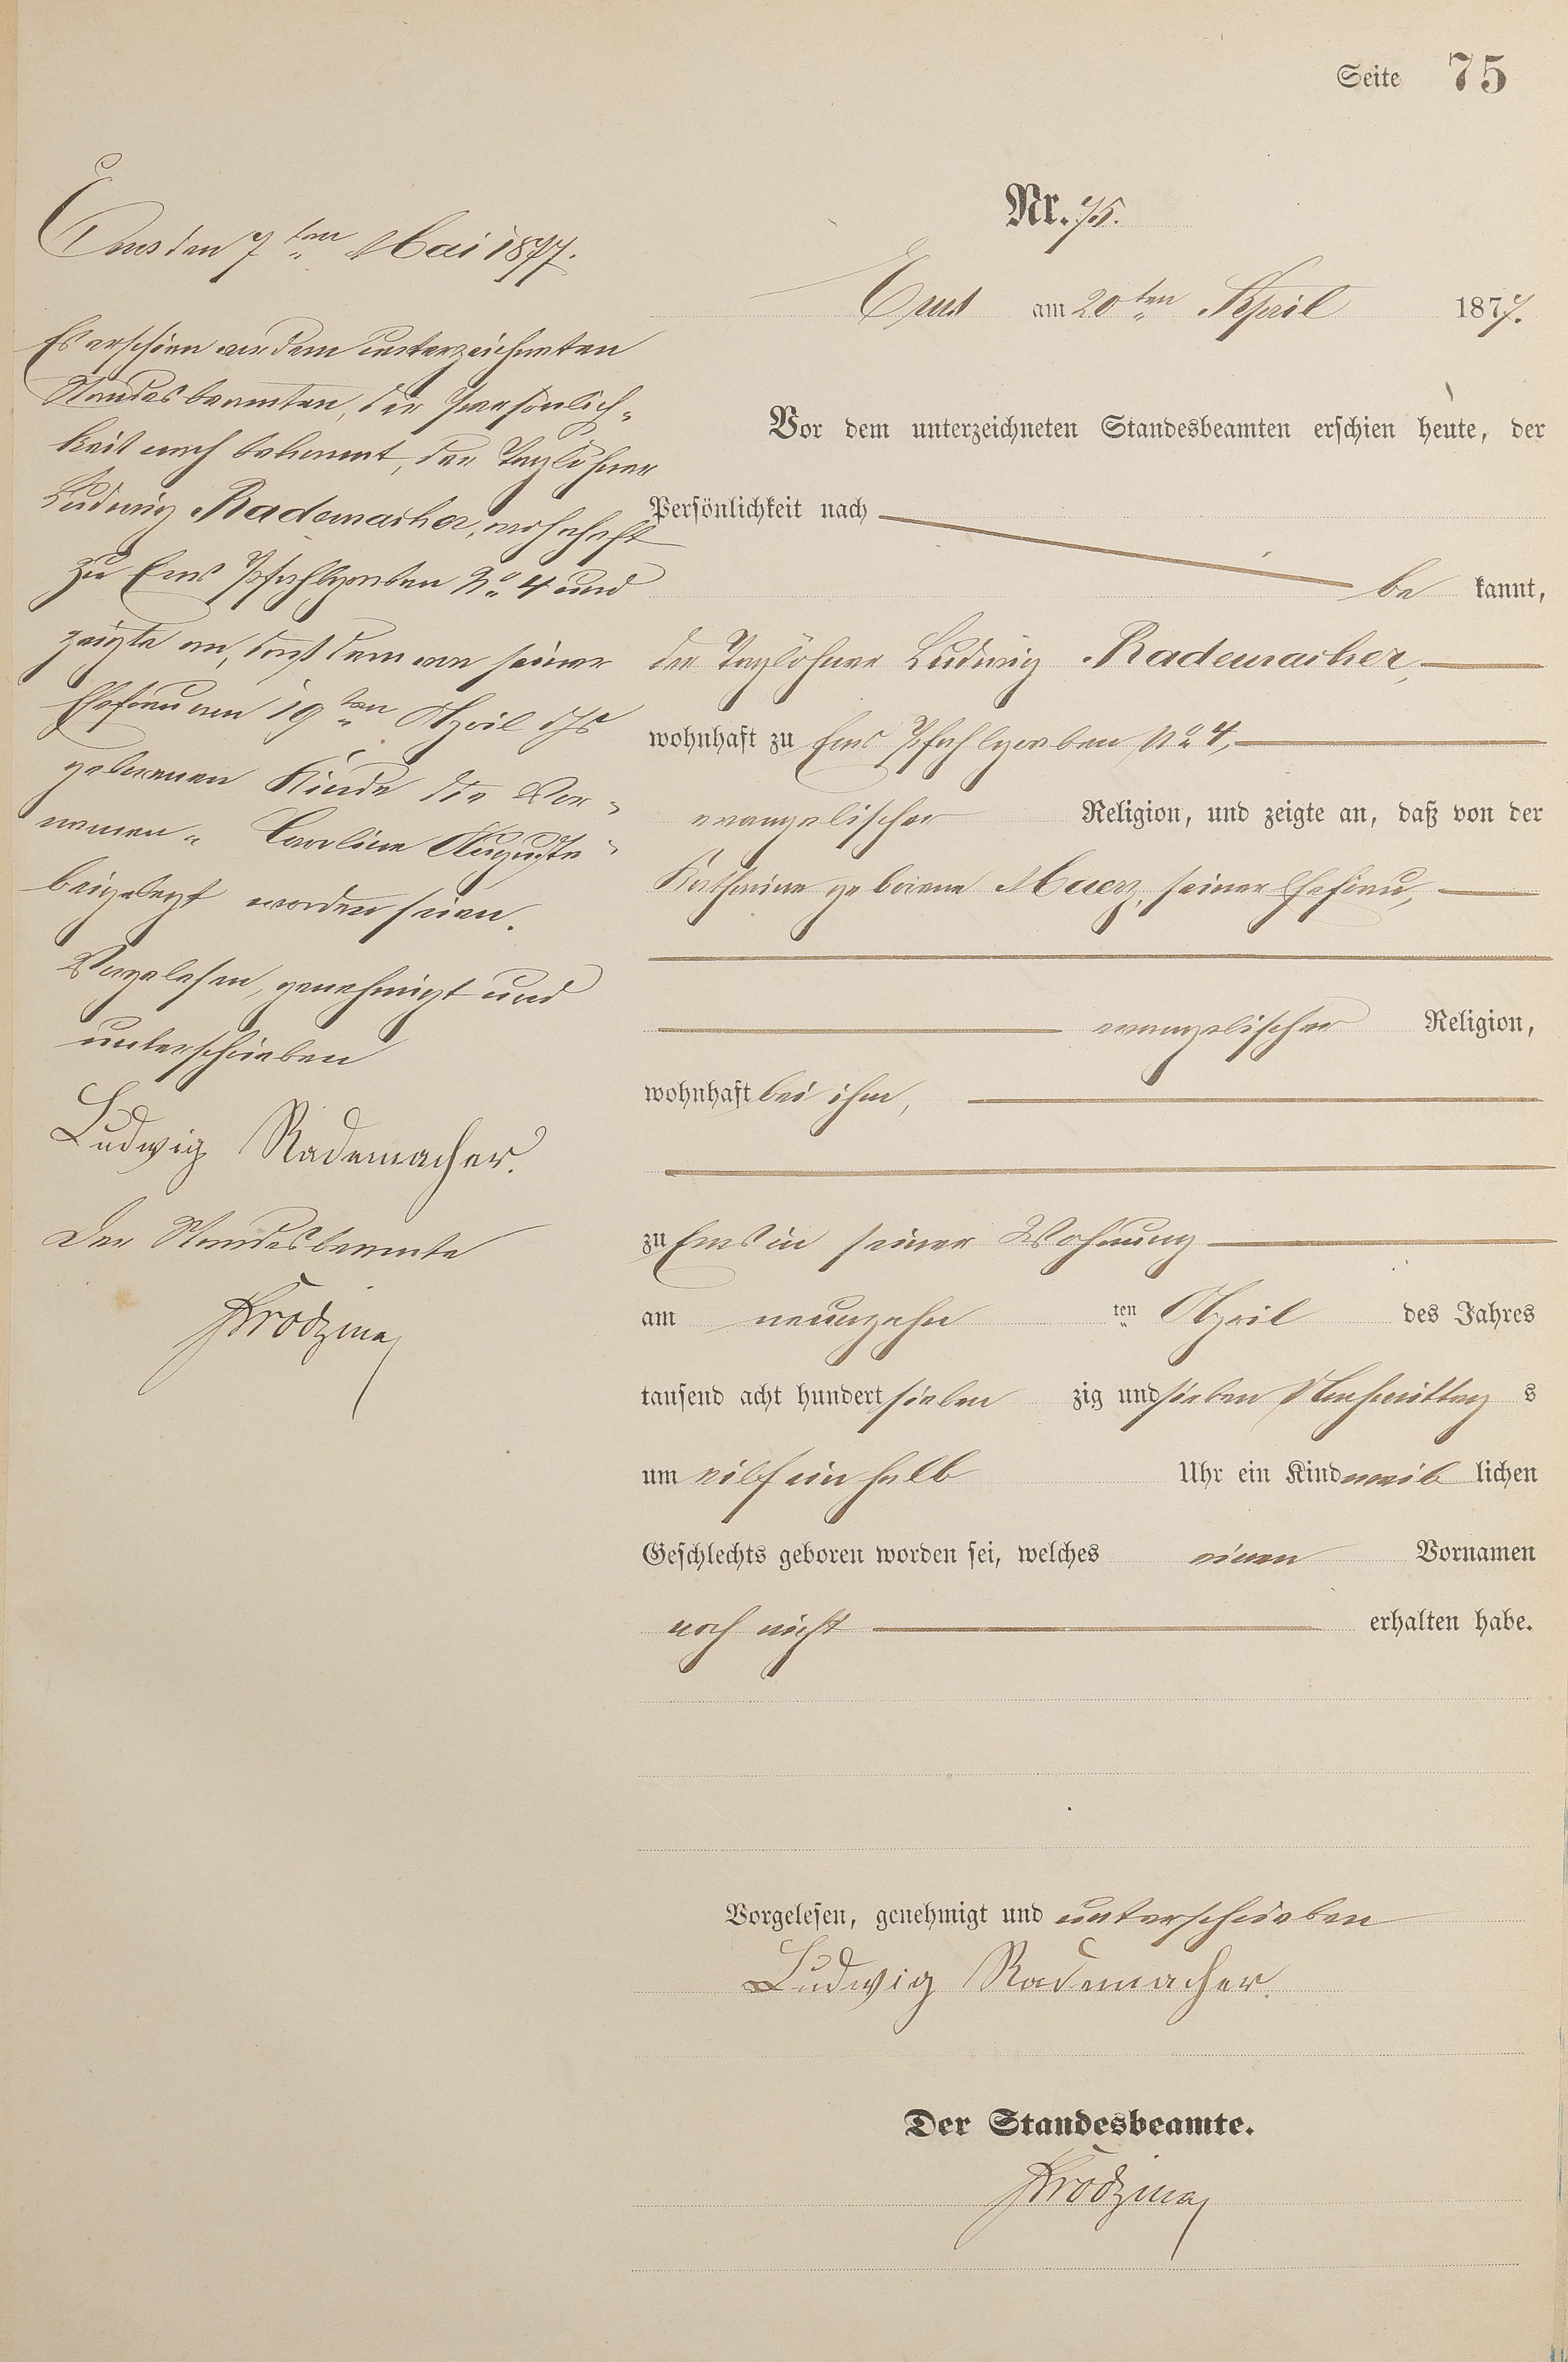 Seite 75
Nr. 75.
Ems am 20ten April 1877.
Vor dem unterzeichneten Standesbeamten erschien heute, der
Persönlichkeit nach
be kannt,
der Taglöhner Ludwig Rademacher,
wohnhaft zu Ems Pfahlgraben No 4,
evangelischer Religion, und zeigte an, daß von der
Katharine geborene Maerz, seiner Ehefrau,
evangelischer Religion,
wohnhaft bei ihm,
zu Ems in seiner Wohnung
am neunzehn ten April des Jahres
tausend acht hundert sieben zig und sieben Nachmittag s
um eilf ein halb Uhr ein Kind weib lichen
Geschlechts geboren worden sei, welches einen Vornamen
noch nicht erhalten habe.
Vorgelesen, genehmigt und unterschrieben
Ludwig Rademacher.
Der Standesbeamte.
Ems den 7ten Mai 1877.
Es erschien vor dem unterzeichneten
Standesbeamten, der Persönlich-
keit nach bekannt, der Taglöhner
Ludwig Rademacher, wohnhaft
zu Ems Pfahlgraben No 4 und
zeigte an, daß dem von seiner
Ehefrau am 19ten April d Js
geborenen Kinde die Vor-
namen " Caroline Auguste "
beigelegt worden seien.
Vorgelesen, genehmigt und
unterschrieben
Ludwig Rademacher.
Der Standesbeamte